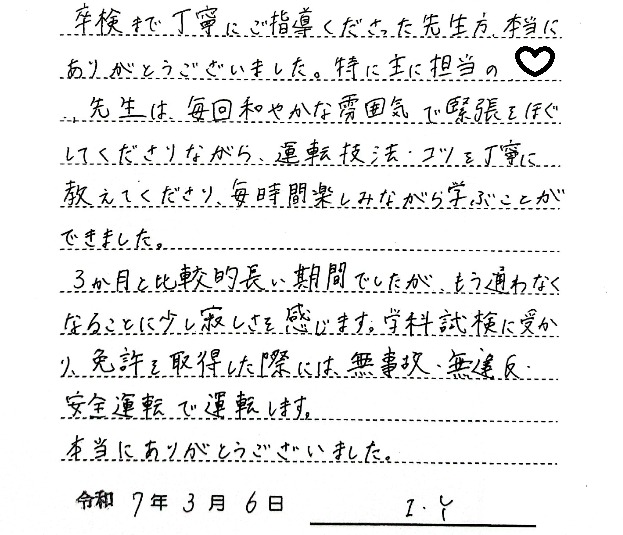 卒検まで丁寧にご指導くださった先生方、本当に
ありがとうございました。特に主に担当の
先生は、毎回和やかな雰囲気で緊張をほぐ
してくださりながら、運転技法・コツを丁寧に
教えてくださり、毎時間楽しみながら学ぶことが
できました。
3か月と比較的長い期間でしたが、もう通わなく
なることに少し寂しさを感じます。学科試検に受か
り、免許を取得した際には、無事故・無違反・
安全運転で運転します。
本当にありがとうございました。
令和 7年 3月 6日